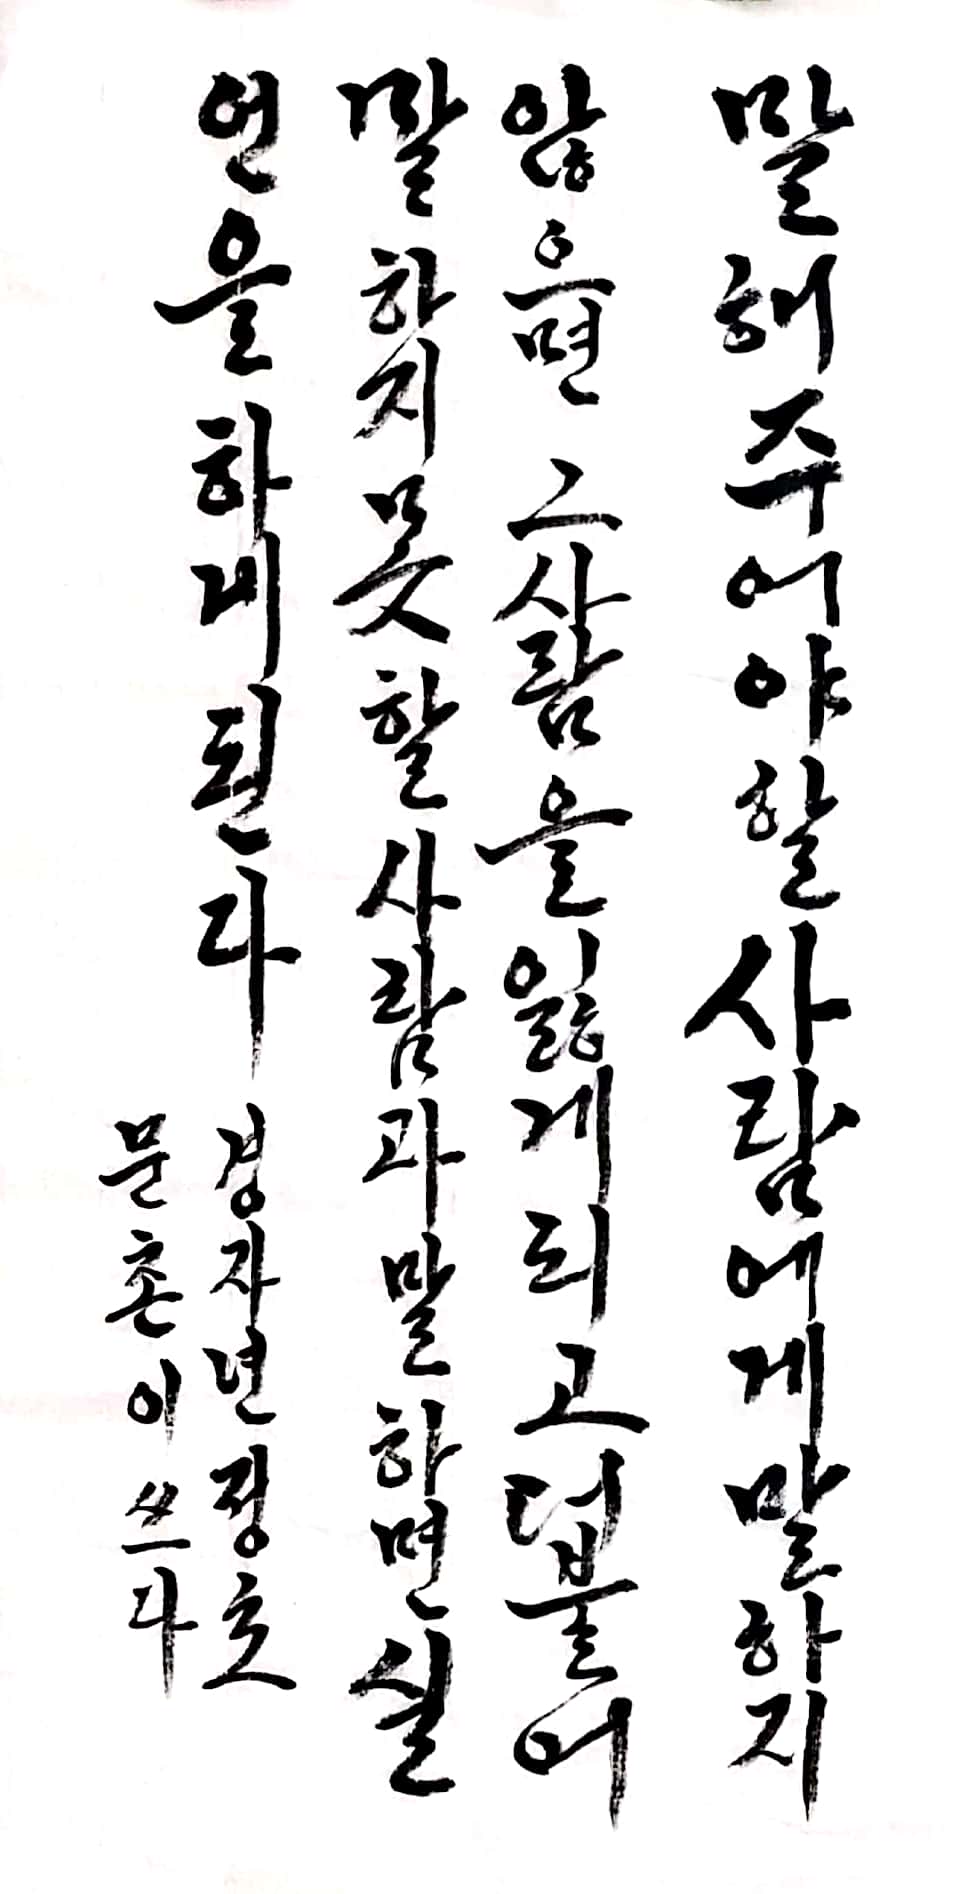 말해주어야할사람에게말하지
않으면그사람을잃게되고더불어
말하지못할사람과말하면실
언을하게된다
경자년정초
문촌이쓰다